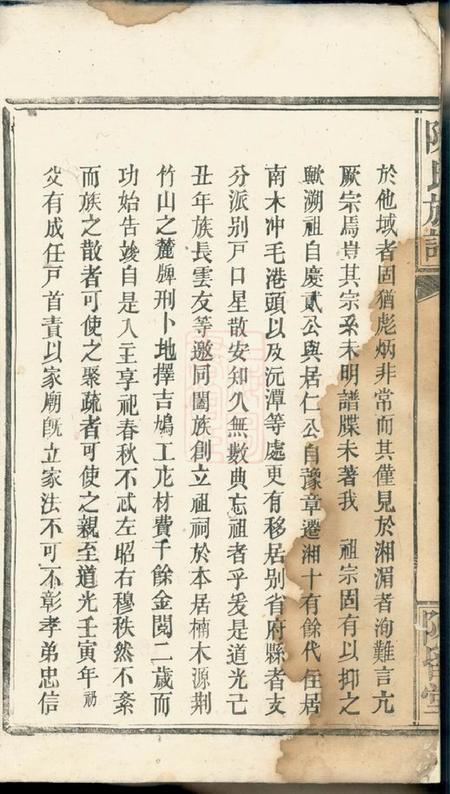 於他域者固猶彪炳非常而其僅見於湘湄者洵難言亢
厥宗焉豈其宗系未明譜牒未著我　祖宗固有以抑之
歟溯祖自慶貳公與居仁公自豫章遷湘十有餘代住居
南木冲毛港頭以及沅潭等處更有移居别省府縣者支
分派别戸口星散安知久無數典忘祖者乎爰是道光己
丑年族長雲友等邀同闔族創立祖祠於本居楠木源荆
竹山之麓牌刑卜地擇吉鳩工庀材費千餘金閲二歲而
功始告竣自是入主享祀春秋不忒左昭右穆秩然不紊
而族之散者可使之聚疏者可使之親至道光壬寅年
有成任戸首責以家廟既立家法不可不彰孝弟忠信
陳氏族譜